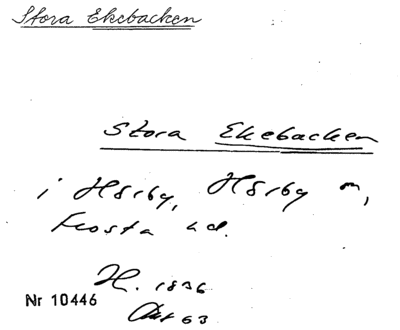 Stora Ekebacken
Stora Ekebacken
i Hörby, Hörby sn,
Frosta hd.
H. 1836
Nr 10446
63